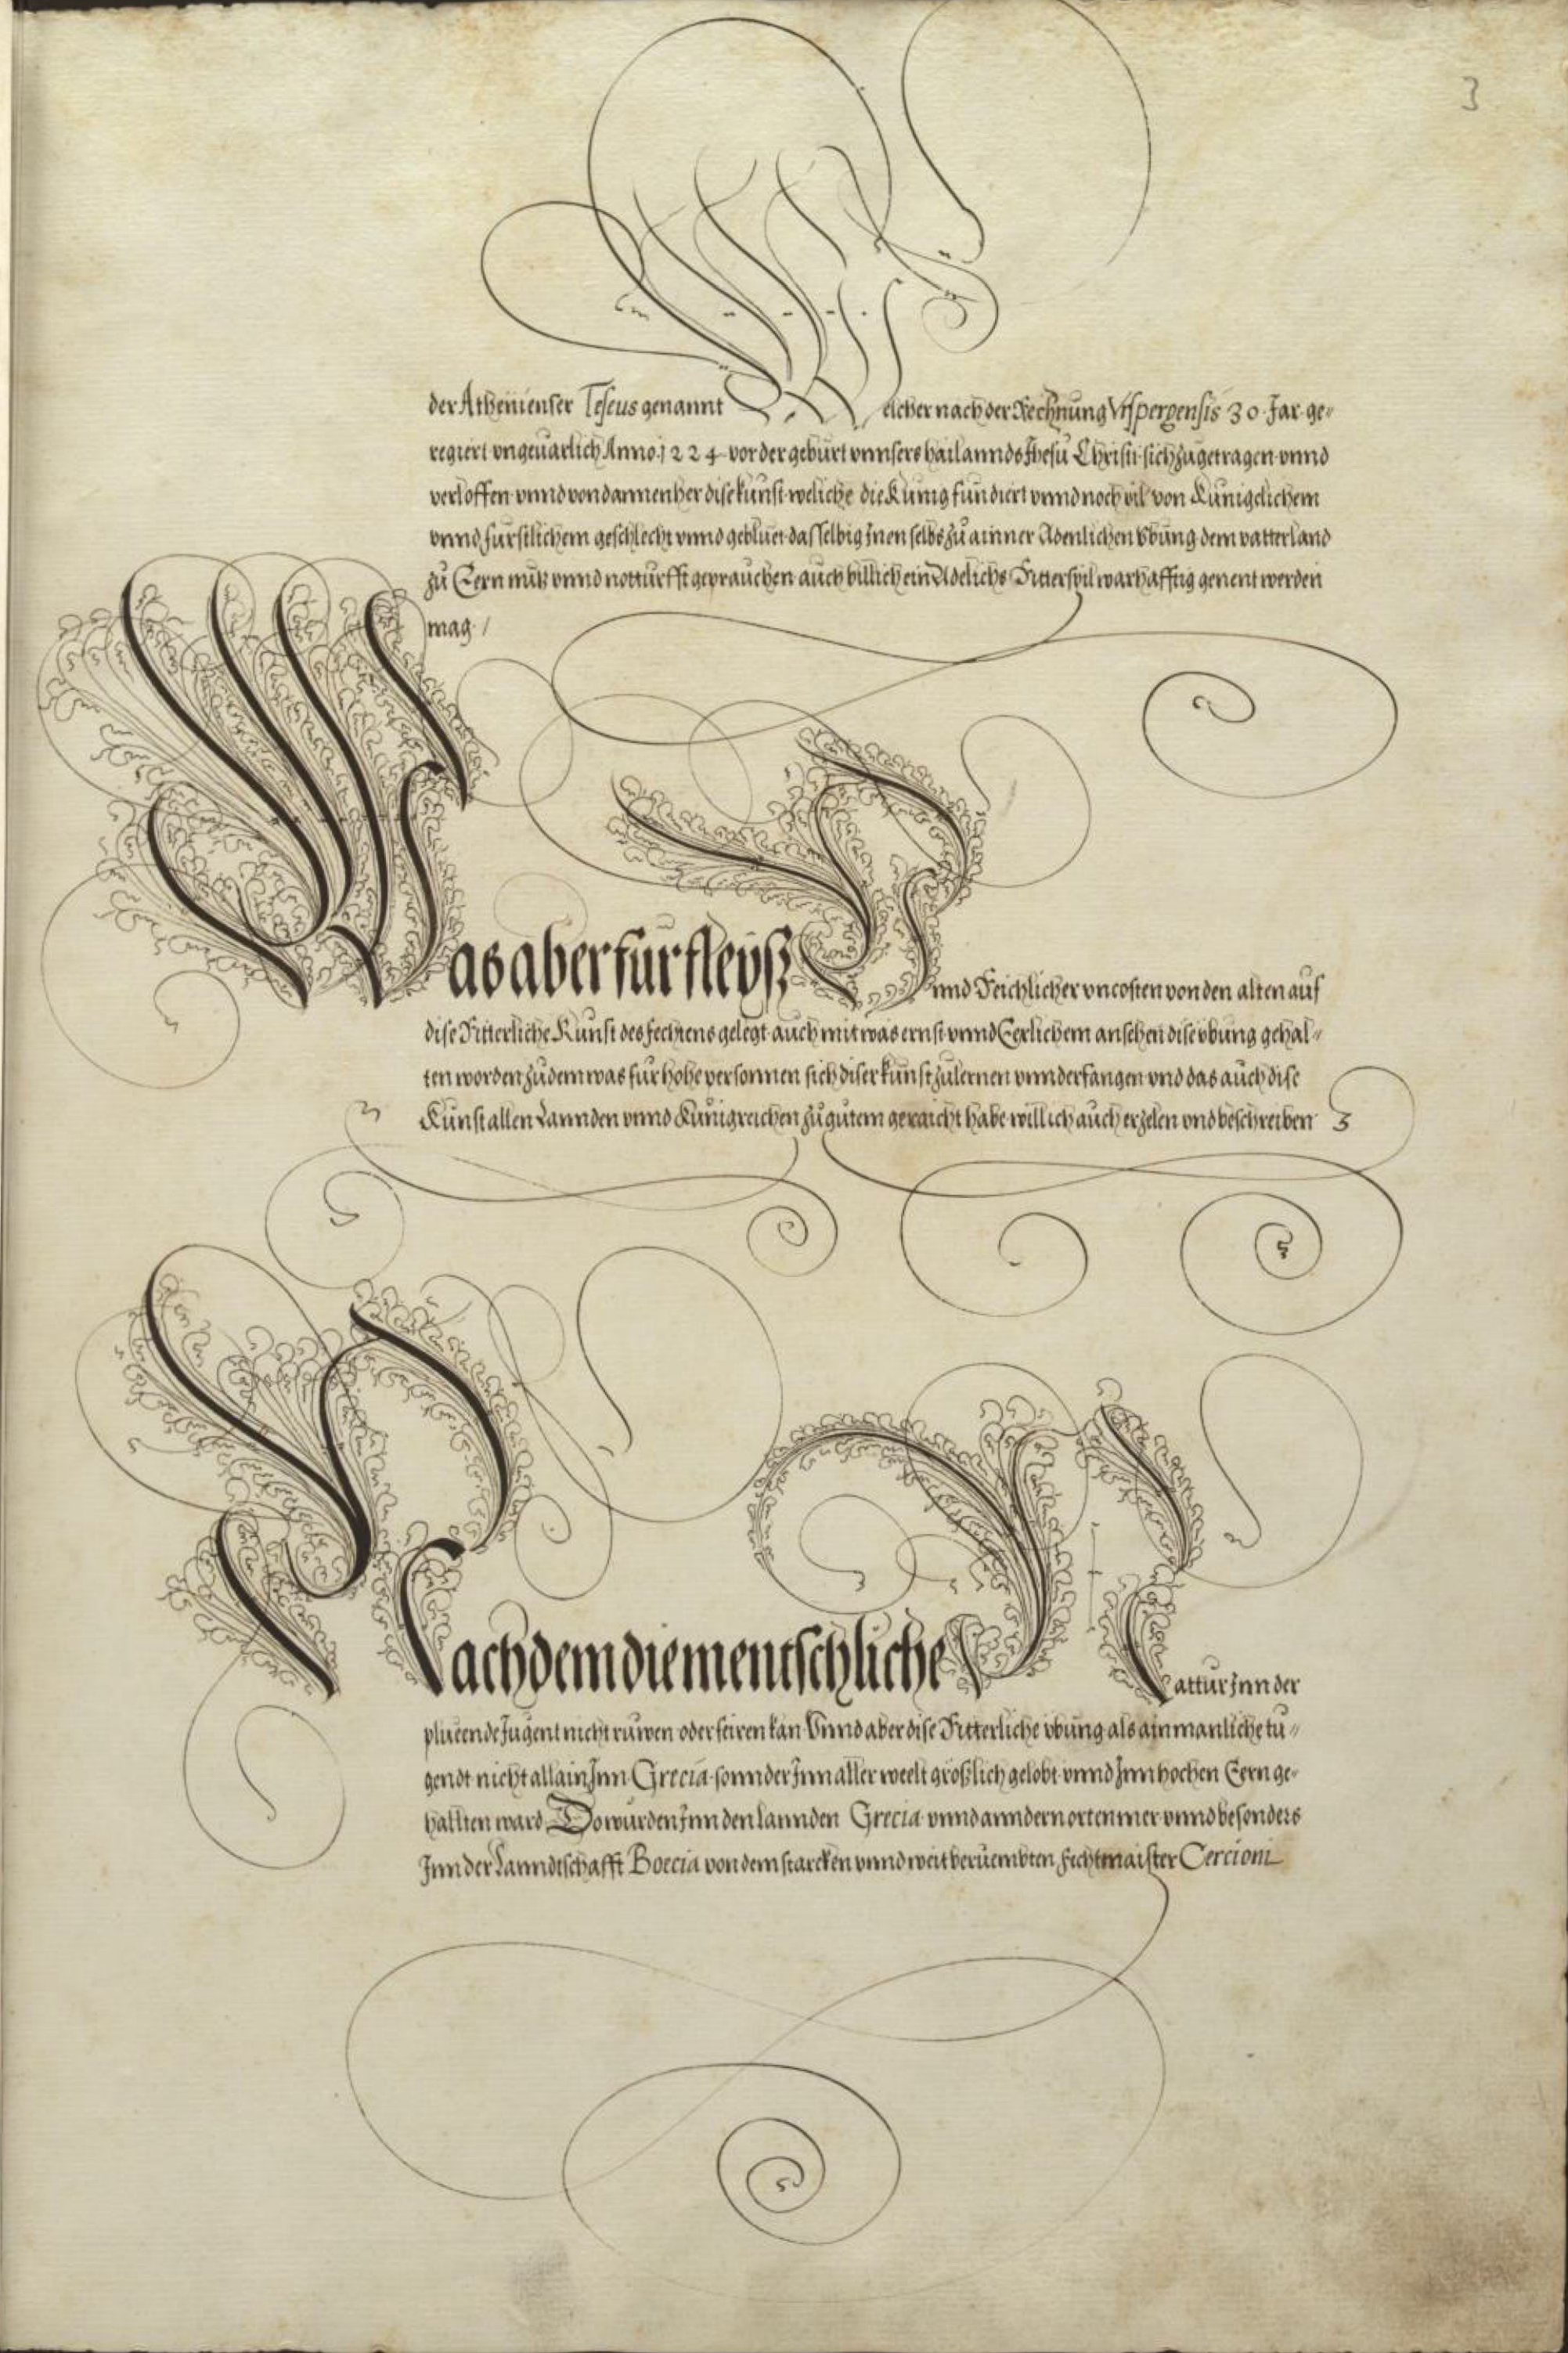 3
der Athenienser Teseus genannt Welcher nach der Rechnung Vrspergensis 30 Jar ge„
regiert vngeuarlich Anno. 1224 vor der geburt vnnsers hailannds Jhesu Christi sich zugetragen vnnd
verloffen vnnd von dannen her dise kunst weliche die Kunig fundiert vnnd noch vil von Kunigclichem
vnnd furstlichem geschlecht vnnd gebluet dasselbig Inen selbs zu ainner Adenlichen Vbung dem vatterland
zu Eern nutz vnnd notturfft geprauchen auch billich ein Adelichs Ritterspil warhafftig genent werden
mag /
Was aber fur fleysz Vnnd Reichlicher vncosten von den alten auf
dise Ritterliche Kunst des fechtens gelegt auch mit was ernst vnnd Eerlichem ansehen dise vbung gehal„
ten worden zudem was fur hohe personnen sich diser kunst zulernen vnnderfangen vnd das auch dise
Kunst allen Lannden vnnd Kunigreichen zu gutem geraicht habe will ich auch erzelen vnd beschreiben
Nach dem die mentschliche Nattur Inn der
plueende Jugent nicht ruwen oder feiren kan Vnnd aber dise Ritterliche vbung als ain manliche tu„
gendt nicht allain Inn Grecia sonnder Inn aller weelt größlich gelobt vnnd Inn hochen Eern ge„
hallten ward Do wurden Inn den lannden Grecia vnnd anndern orten mer vnnd besonders
Inn der Lanndtschafft Boecia von dem starcken vnnd weitberuembten fechtmaister Cercioni